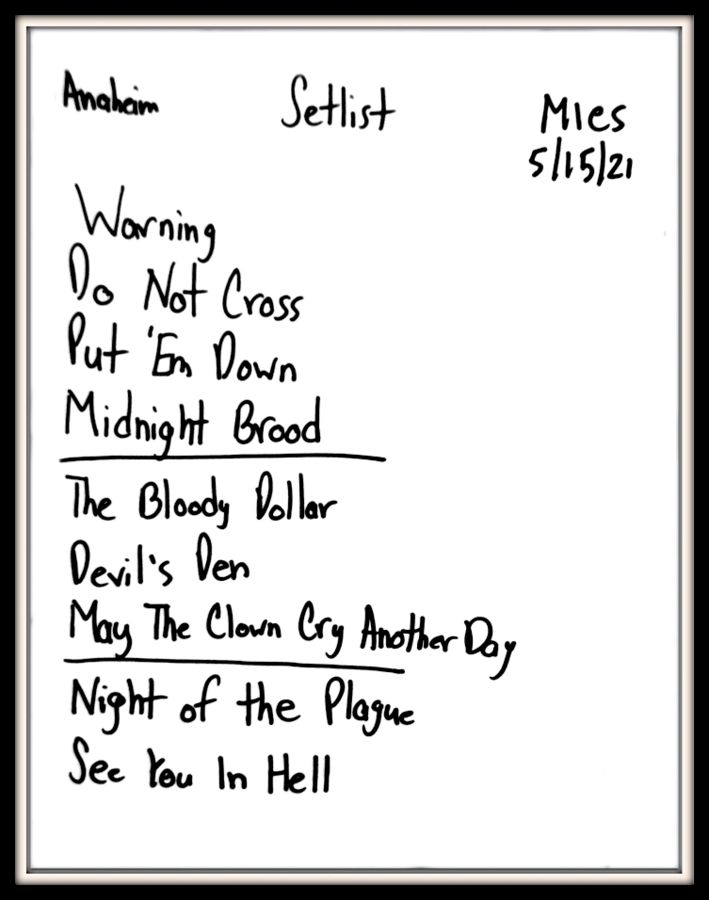 Anaheim Setlist MIes
5/15/21
Warning
Do Not Cross
Put 'Em Down
Midnight Brood
The Bloody Dollar
Devil's Den
May The Clown Cry Another Day
Night of the Plague
See You In Hell